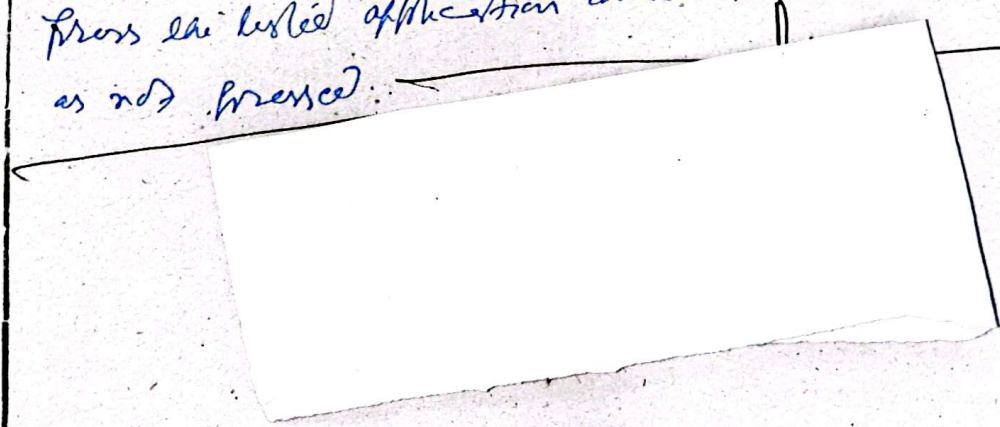 press the listed application
as not pressed.